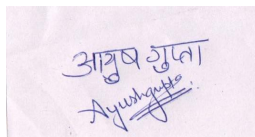 आयुष गुप्ता
Ayushgupta